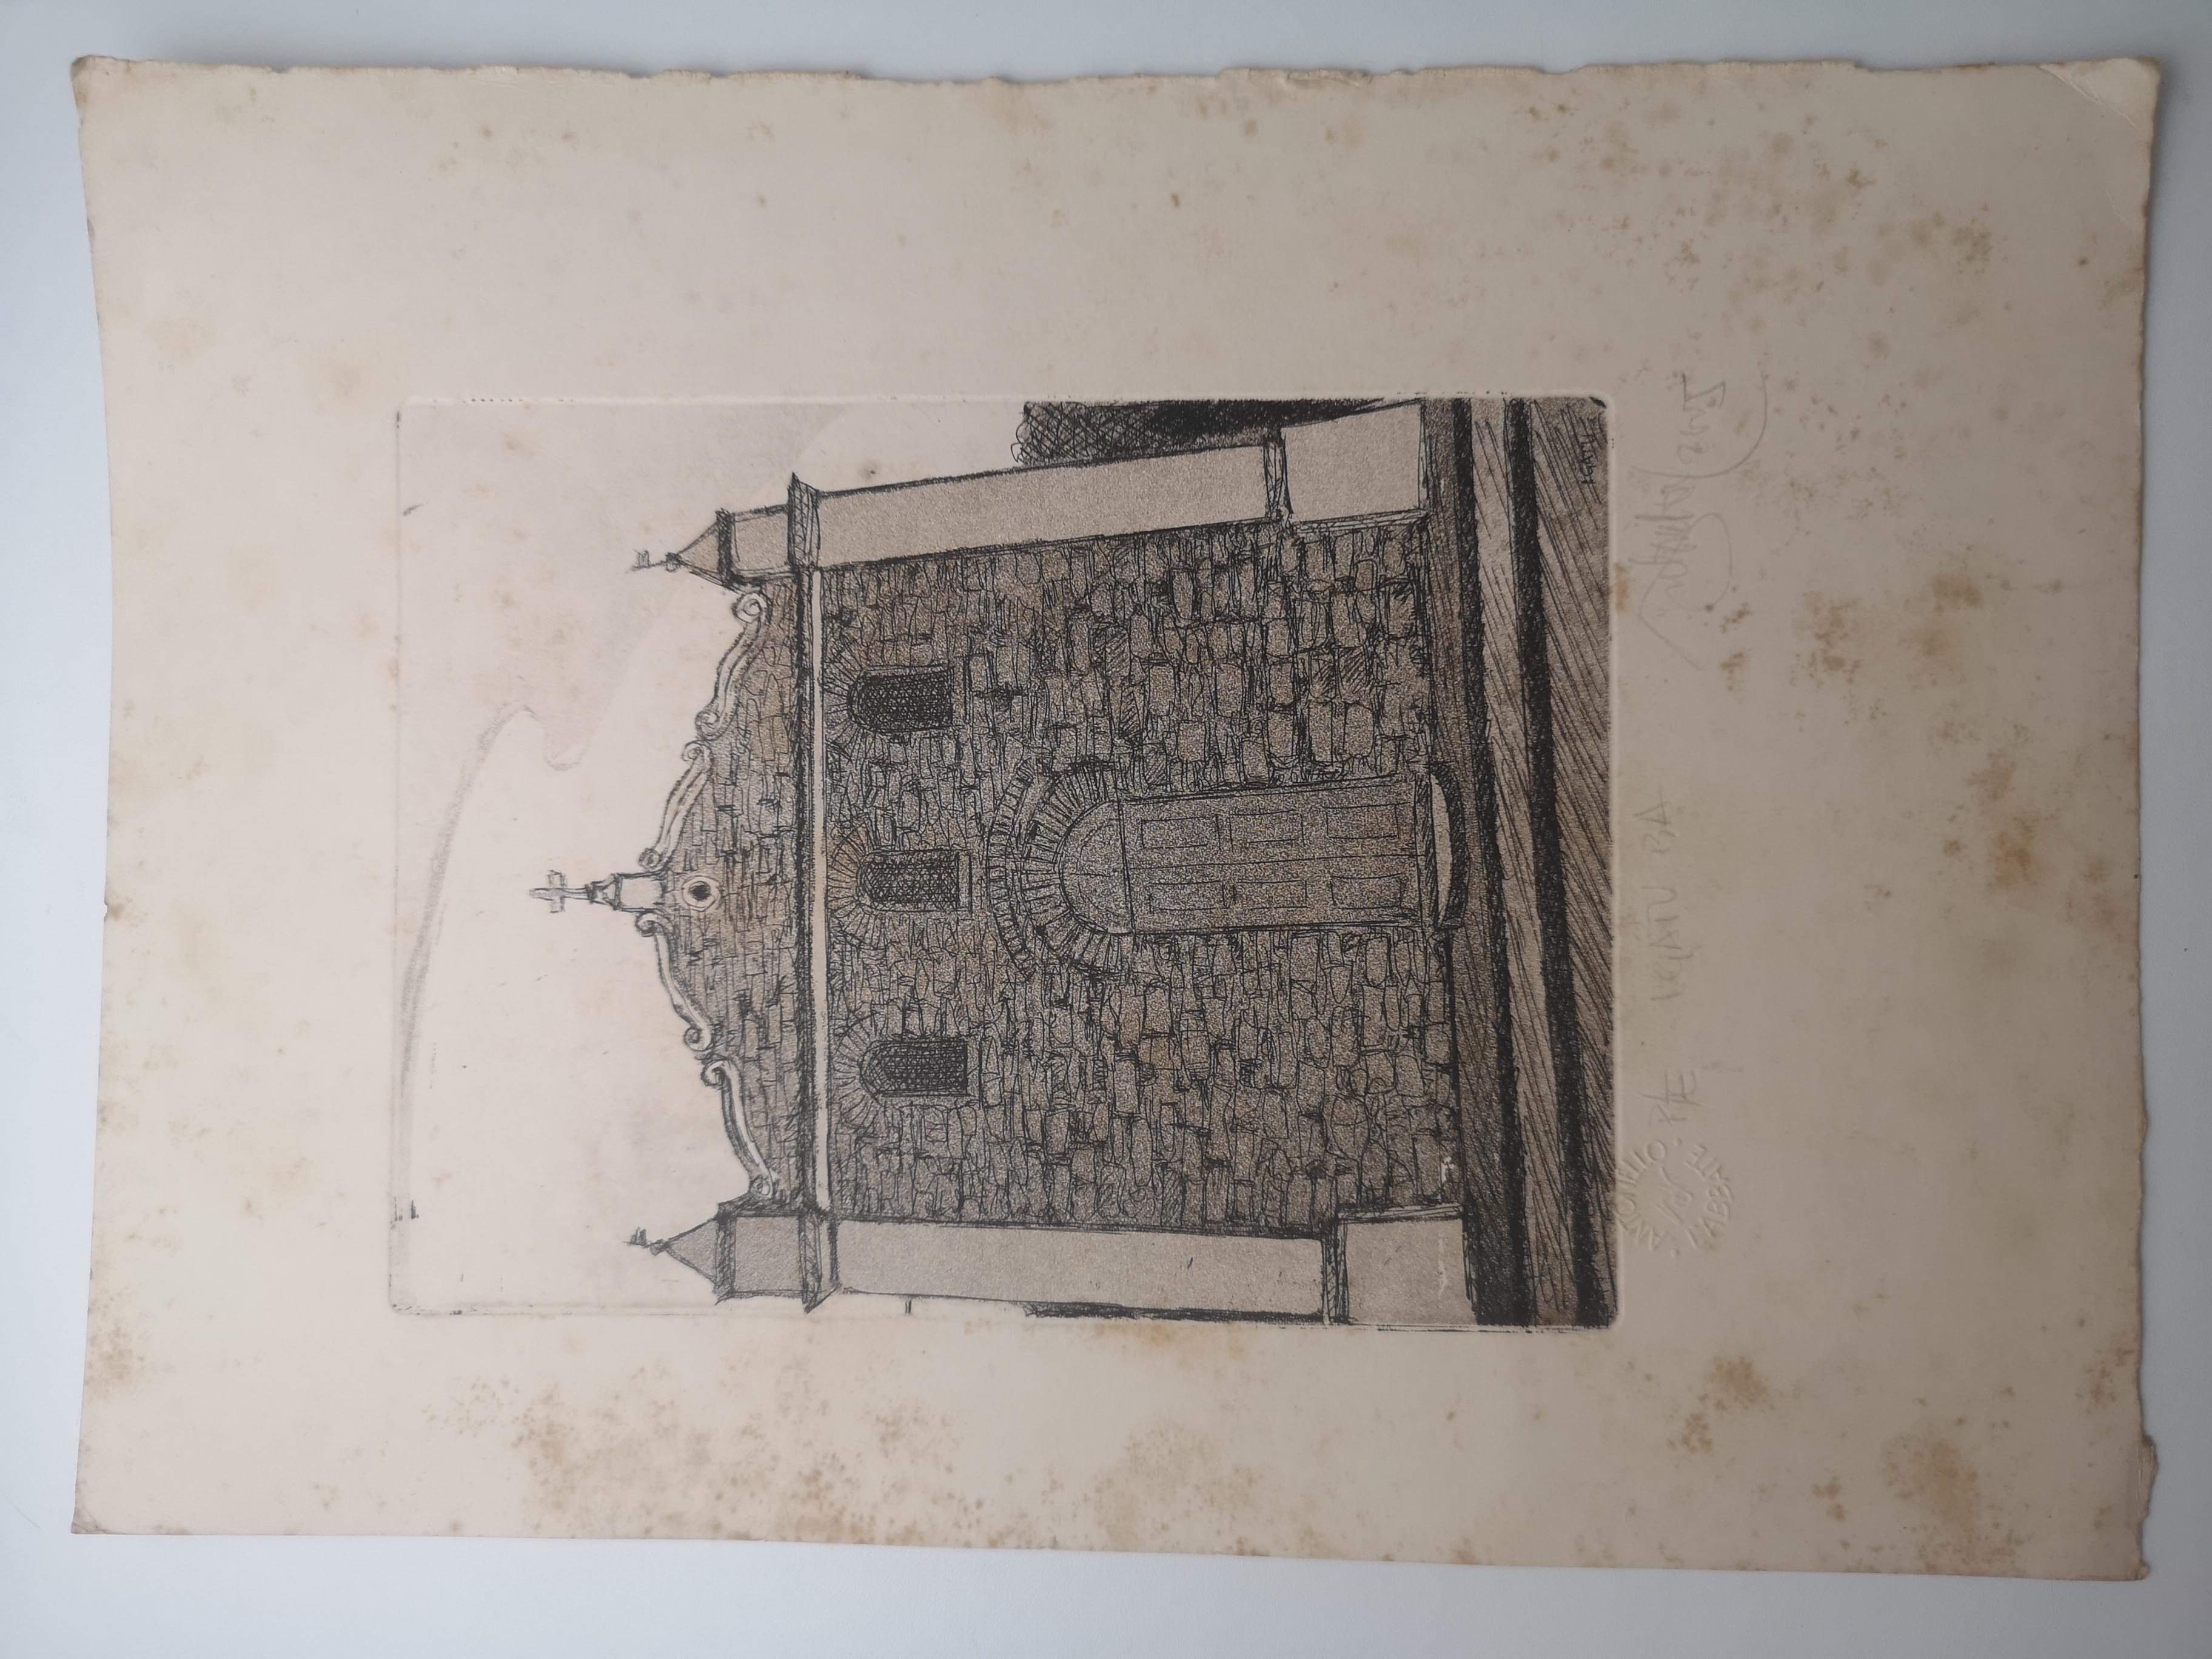 IGATU
ANTONELLO L'ABBATE
P/E IGATU BA
2005